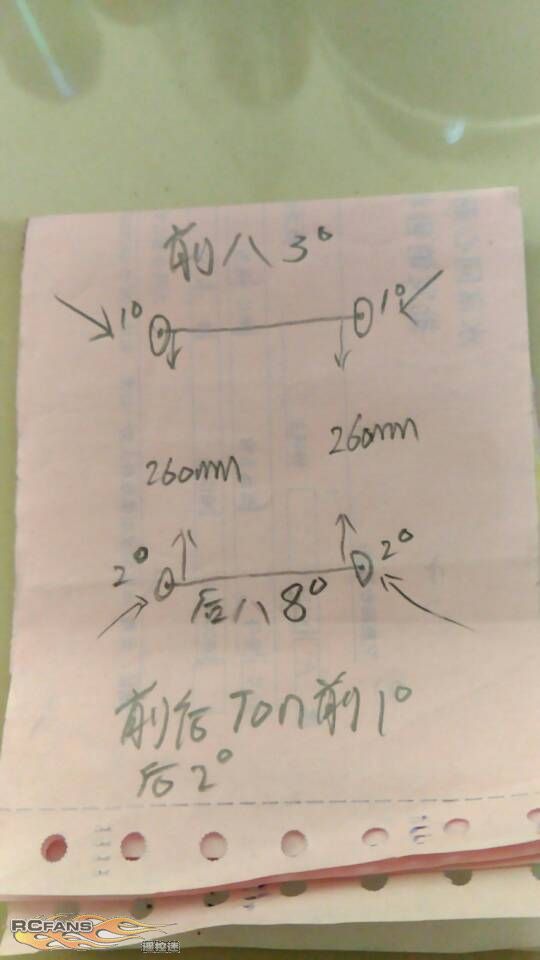 前八3°
1° 1°
260mm 260mm
2° 2°
后八8°
前后Ton前1°
后2°
RCFANS
遥控迷